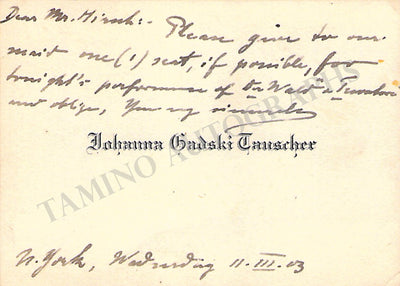 Dear Mr. Hirsch:- Please give to our
maid one (1) seat, if possible, for
tonight's performance of Der Wald & Trovatore
and oblige, Yours very sincerely
Johanna Gadski Tauscher
TAMINO AUTOGRAPHS
N. York, Wednesday 11. III. 03